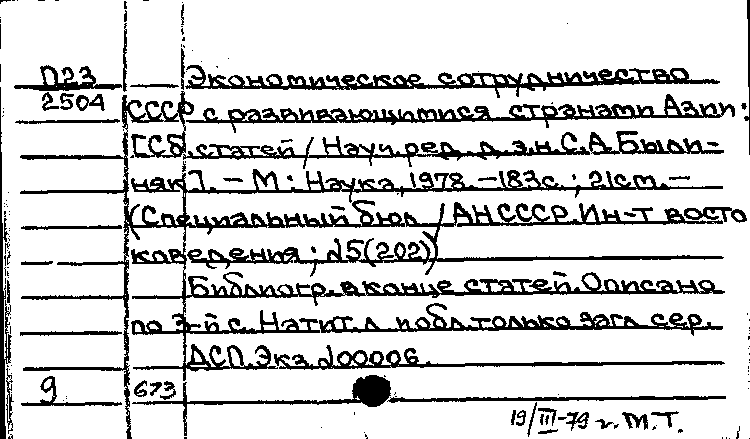 П23 Экономическое сотрудничество
2504 СССР с развивающимися странами Азии:
[Сб. статей / Науч. ред. д. э. н. С. А. Былиняк]. – М: Наука, 1978. – 183с.; 21см. –
(Специальный бюл / АН СССР. Ин-т востоковедения; №5(202))
Библиогр. в конце статей. Описано
по 3-й с. На тит. л и обл. только загл сер.
ДСП. Экз. №00006.
9 673
19/III-79 г. М.Т.